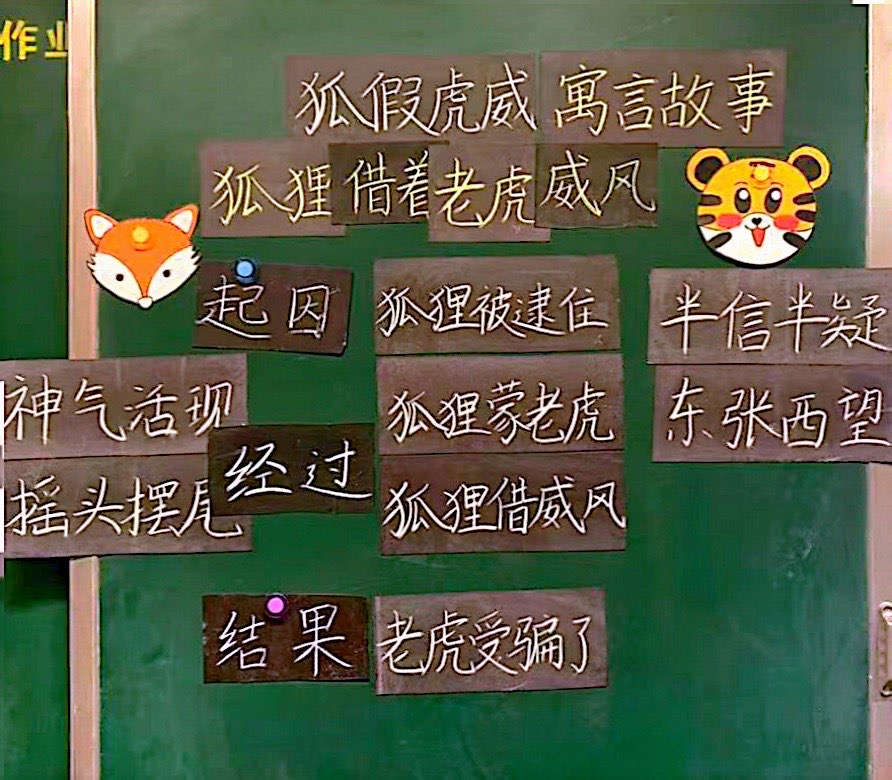 作业
狐假虎威 寓言故事
狐狸借着老虎威风
起因 狐狸被逮住 半信半疑
神气活现 狐狸蒙老虎 东张西望
经过
摇头摆尾 狐狸借威风
结果 老虎受骗了